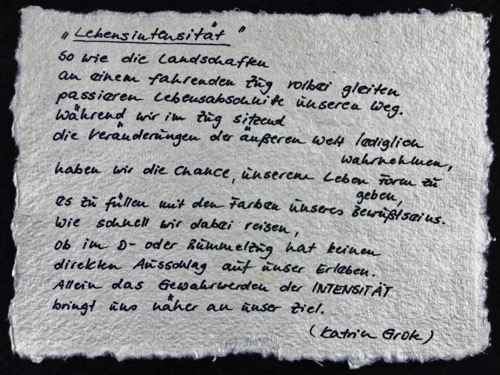 „Lebensintensität"
So wie die Landschaften
an einem fahrenden Zug vorbei gleiten
passieren Lebensabschnitte unseren Weg.
Während wir im Zug sitzend
die Veränderungen der äußeren Welt lediglich
wahrnehmen,
haben wir die Chance, unserem Leben Form zu
geben,
es zu füllen mit den Farben unseres Bewußtseins.
Wie schnell wir dabei reisen,
ob im D- oder Bummelzug hat keinen
direkten Ausschlag auf unser Erleben.
Allein das Gewahrwerden der INTENSITÄT
bringt uns näher an unser Ziel.
(Katrin Grote)